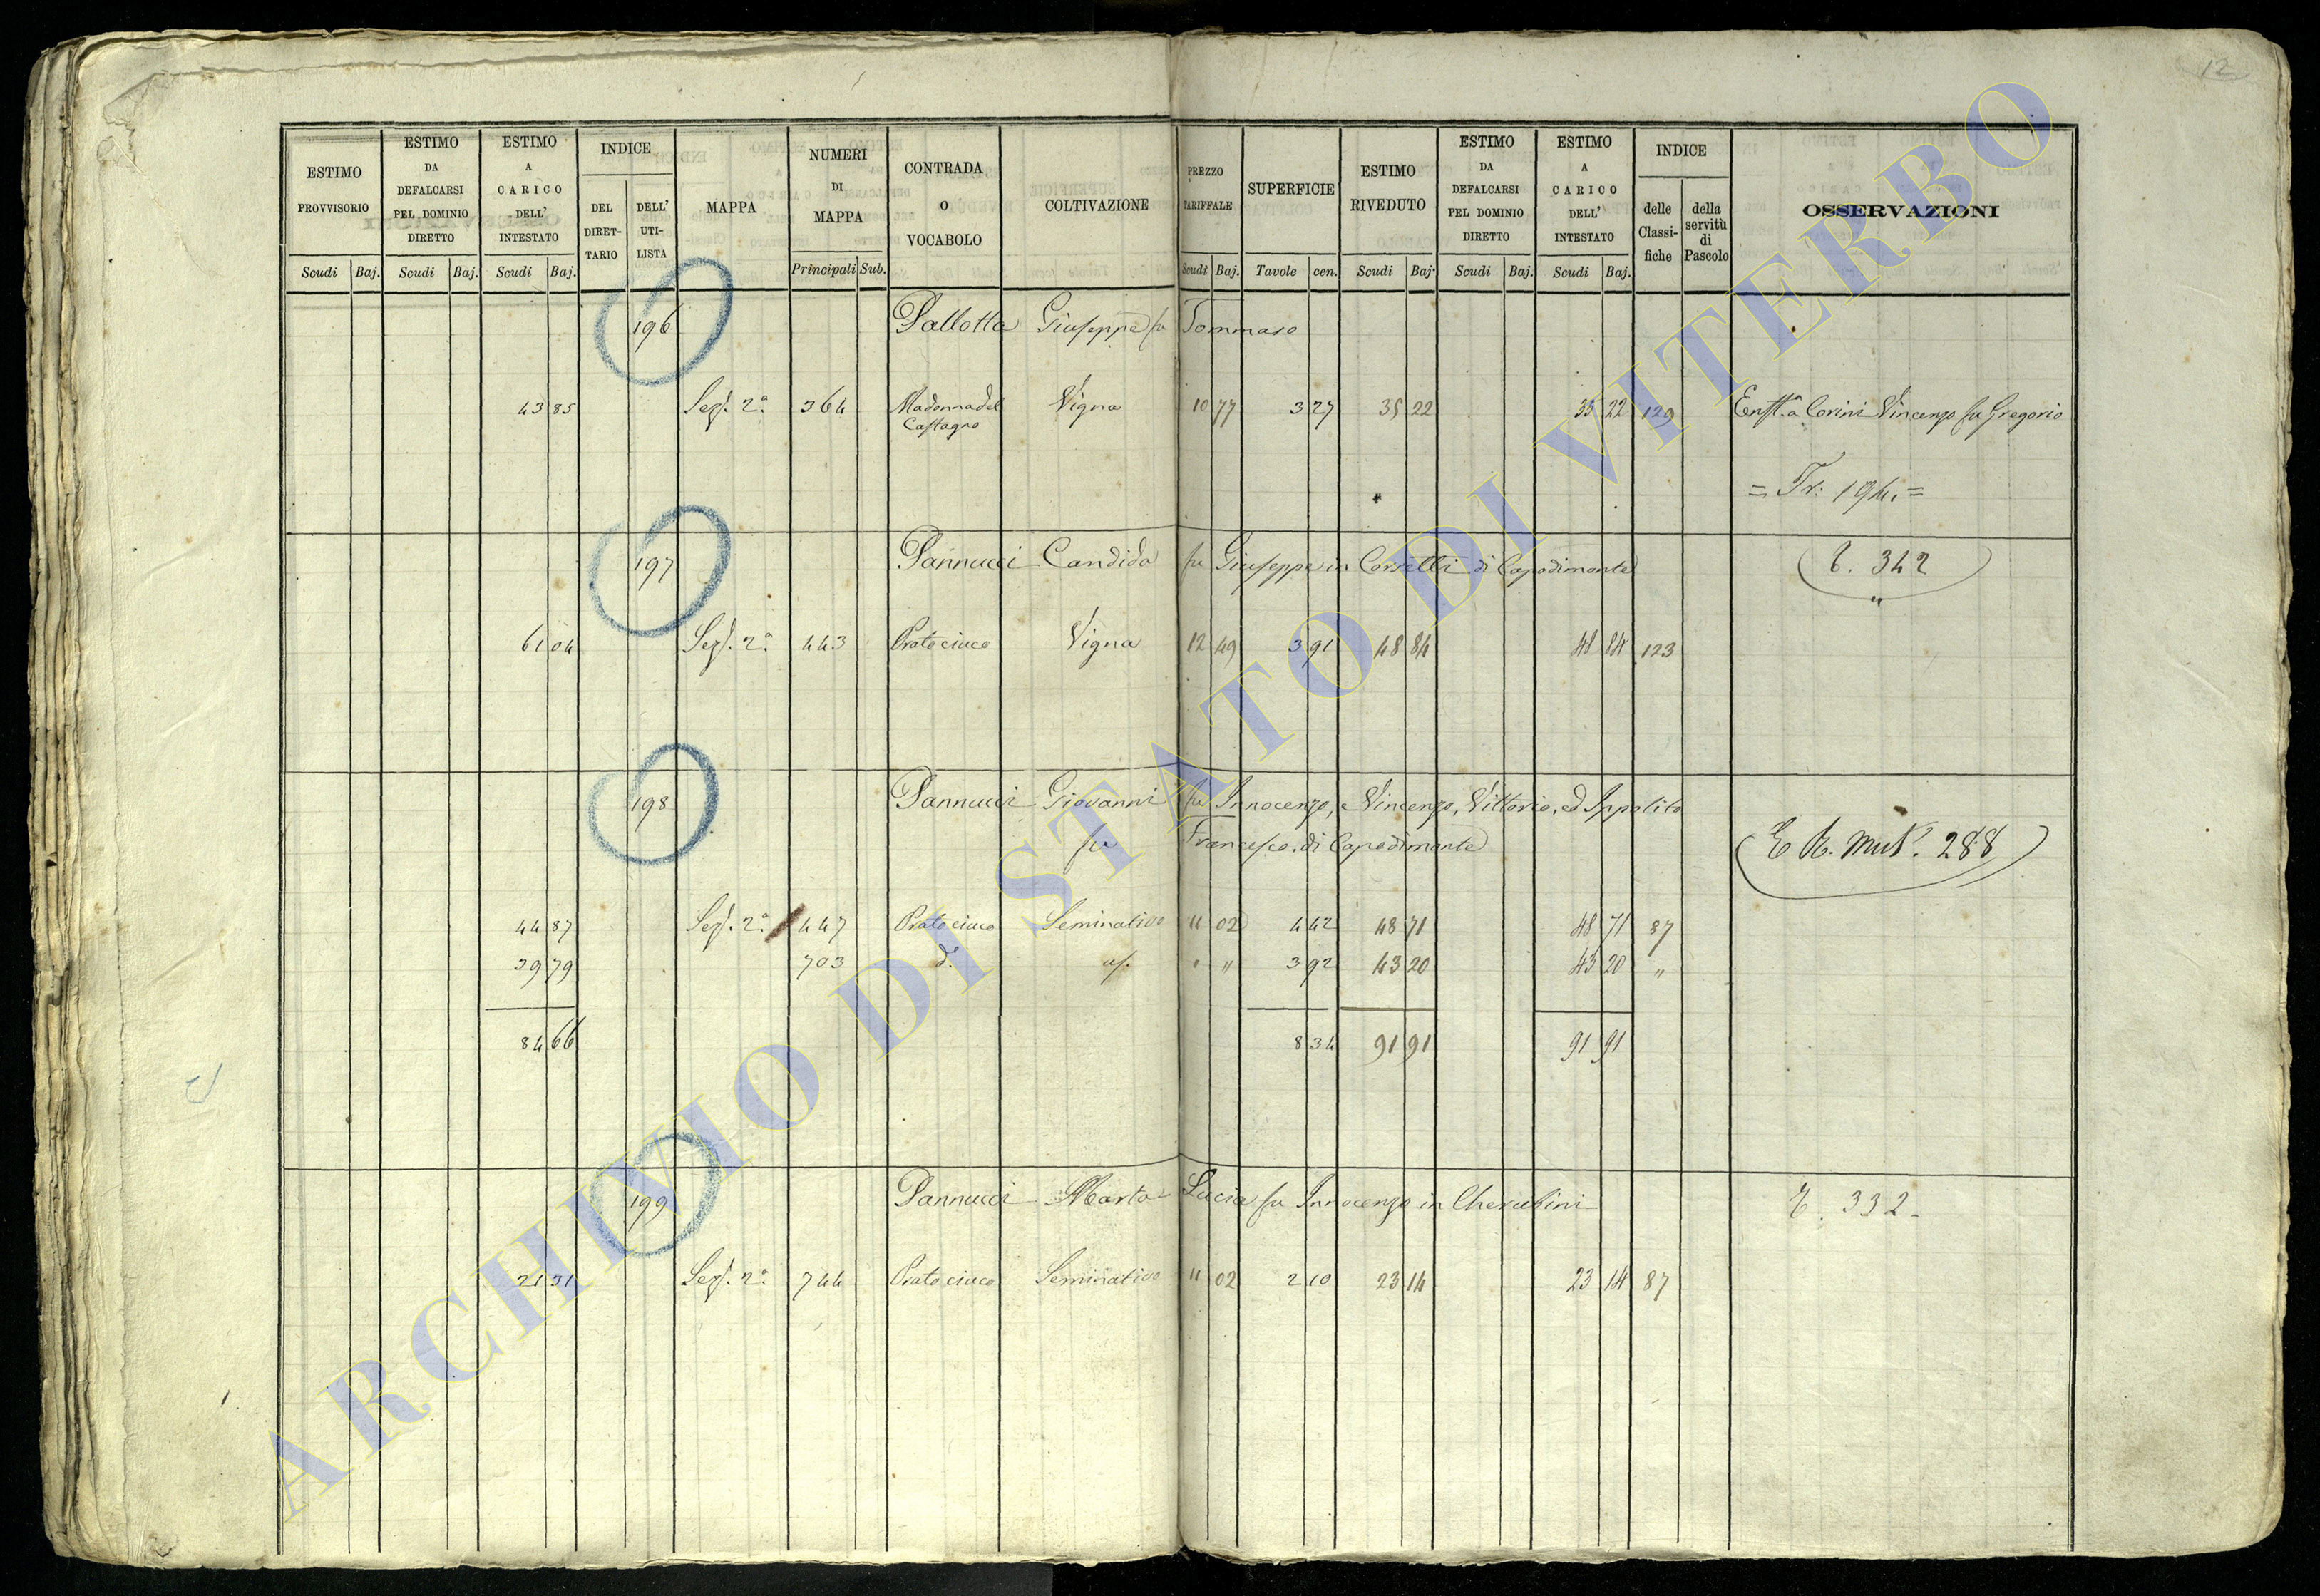 12
ESTIMO PROVVISORIO
ESTIMO DA DEFALCARSI PEL DOMINIO DIRETTO
ESTIMO A CARICO DELL' INTESTATO
INDICE
DEL DIRET-TARIO
DELL' UTI-LISTA
MAPPA
NUMERI DI MAPPA
CONTRADA O VOCABOLO
COLTIVAZIONE
PREZZO TARIFFALE
SUPERFICIE
ESTIMO RIVEDUTO
ESTIMO DA DEFALCARSI PEL DOMINIO DIRETTO
ESTIMO A CARICO DELL' INTESTATO
INDICE
delle Classi-fiche
della servitù di Pascolo
OSSERVAZIONI
Scudi Baj. Scudi Baj. Scudi Baj. Principali Sub. Scudi Baj. Tavole cen. Scudi Baj. Scudi Baj. Scudi Baj.
196 Pallotta Giuseppe fu Tommaso
43 85 Sez. 2ª 364 Madonna del Vigna 10 77 3 27 35 22 35 22 129 Corini Vincenzo fu Gregorio
Castagno
= Tr: 194. =
197 Pannucci Candida fu Giuseppe in Corsetti di Capodimonte 342
61 04 Sez. 2ª 443 Prato cinco Vigna 12 49 3 91 48 84 48 84 123
198 Pannucci Giovanni fu Innocenzo, e Vincenzo, Vittorio, ed Ippolito
fu Francesco, di Capodimonte
288
44 87 Sez. 2ª 447 Prato cinco Seminativo 11 02 4 42 48 71 48 71 87
39 79 703 d° " " 3 92 43 20 43 20 "
84 66 8 34 91 91 91 91
199 Pannucci Marta Lucia fu Innocenzo in Cherubini 332
21 31 Sez. 2ª 744 Prato cinco Seminativo 11 02 2 10 23 14 23 14 87
ARCHIVIO DI STATO DI VITERBO